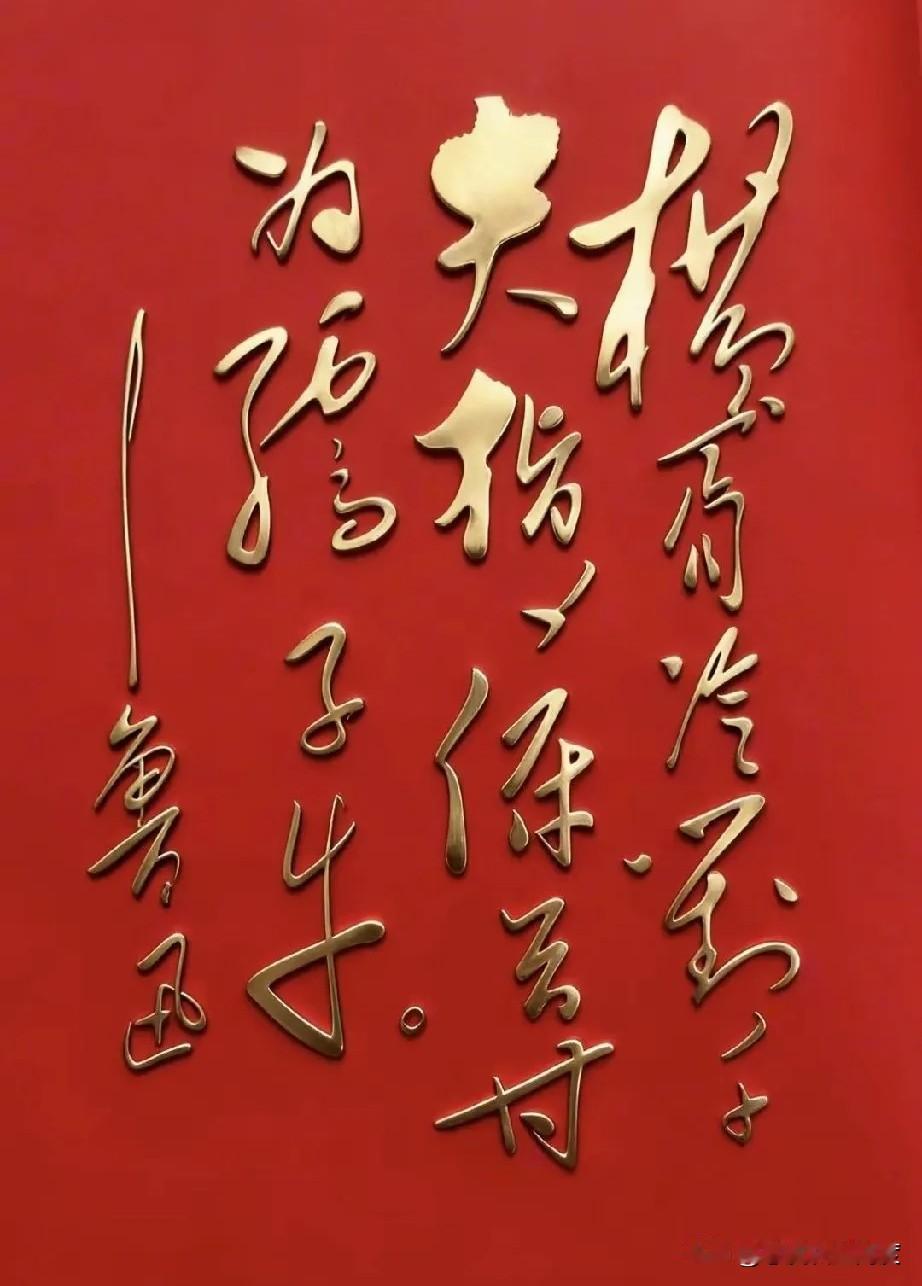 横眉冷对千
夫指,俯首甘
为孺子牛。
——鲁迅